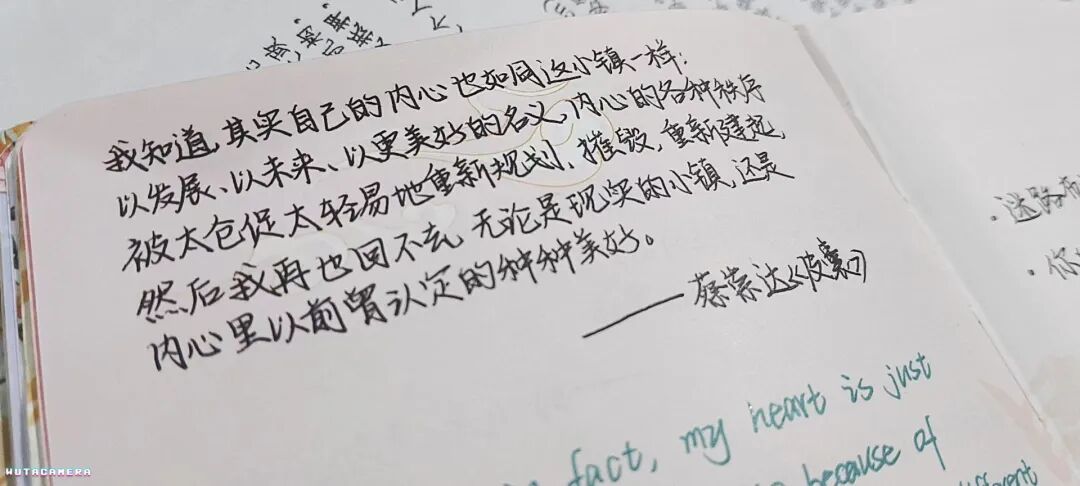 我知道,其实自己的内心也如同这小镇一样:
以发展、以未来、以更美好的名义,内心的各种秩序
被太仓促太轻易地重新规划、摧毁,重新建起,
然后我再也回不去,无论是现实的小镇,还是
内心里以前曾认定的种种美好。
——蔡崇达《皮囊》
fact, my heart is just
because of
different
·迷路
·你
WUTACAMERA